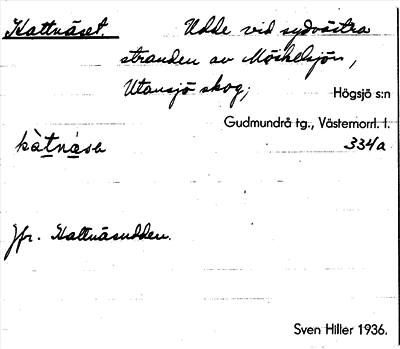 Kattnäset. Udde vid sydvästra
stranden av Möckelsjön,
Utansjö skog; Högsjö s:n
Gudmundrå tg., Västernorrl. l.
kàtnáse 334a
Jfr. Kattnäsudden.
Sven Hiller 1936.